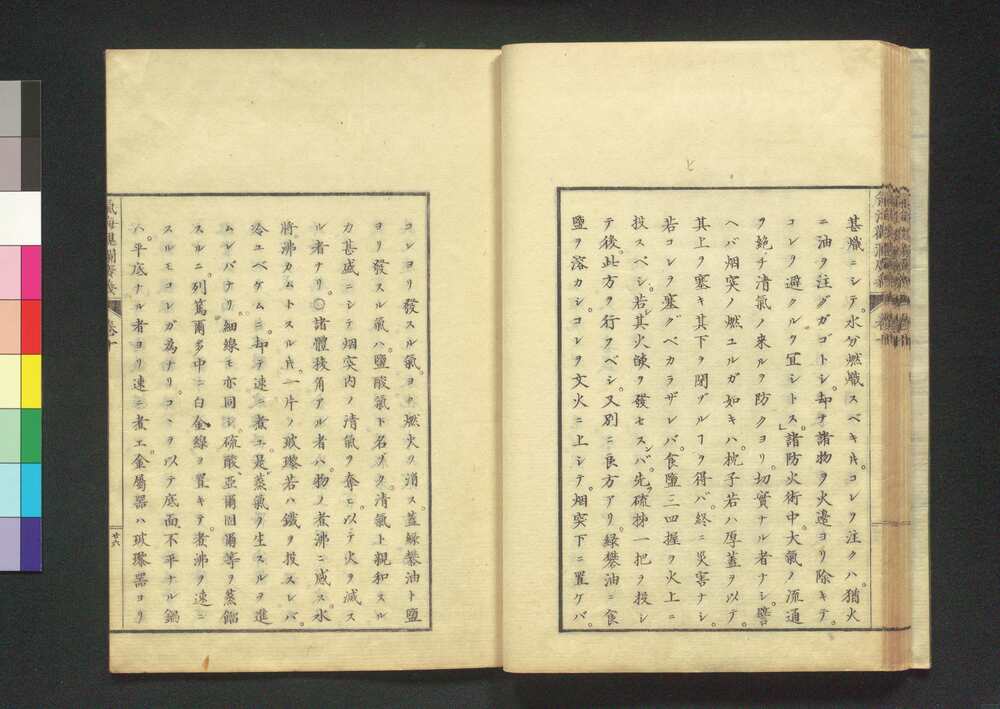 甚熾ニシテ。水分燃熾スベキ𪜈。コレヲ注クハ。猶火
ニ油ヲ注グガゴトシ。却テ諸物ヲ火邉ヨリ除キテ。
コレヲ避クルヲ冝シトス」諸防火術中。大氣ノ流通
ヲ絶チ清氣ノ来ルヲ防クヨリ。切實ナル者ナシ。譬
ヘバ烟突ノ燃ユルガ如キハ。枕子若ハ厚蓋ヲ以テ。
其上ヲ塞キ其下ヲ閉ヅルヿヲ得バ。終ニ災害ナシ。
若コレヲ塞グベカラザレバ。食塩三四握ヲ火上ニ
投スベシ。若其火𤋎ヲ發セズンバ。先ツ硫𬖄一把ヲ投シ
テ後。此方ヲ行フベシ。又別ニ良方アリ。緑礬油ニ食
鹽ヲ溶カシ。コレヲ文火ニ上シテ。烟突下ニ置ケバ。
コレヨリ發スル氣。ヨク燃火ヲ消ス。蓋緑礬油ト鹽
ヨリ發スル氣ハ。鹽酸氣ト名ヅク。清氣ト親和スル
力甚盛ニシテ。烟突内ノ清氣ヲ奪ヒ。以テ火ヲ滅ス
ル者ナリ。〇諸體稜角アル者ハ。物ノ煮沸ニ感ス。水
將沸カムトスル𪜈。一片ノ玻瓈若ハ鐵ヲ投スレバ。
冷ユベケムニ。却テ速ニ煮ユ。是蒸氣ノ生スルヲ進
ムレバナリ。細線モ亦同シ。硫酸。亞爾箇爾等ヲ蒸餾
スルニ。列篤爾多中ニ白金線ヲ置キテ。煮沸ヲ速ニ
スルモコレガ為ナリ。コヽヲ以テ底面不平ナル鍋
ハ。平底ナル者ヨリ速ニ煮エ。金屬器ハ玻瓈器ヨリ
氣海觀瀾廣義
卷十
廿六